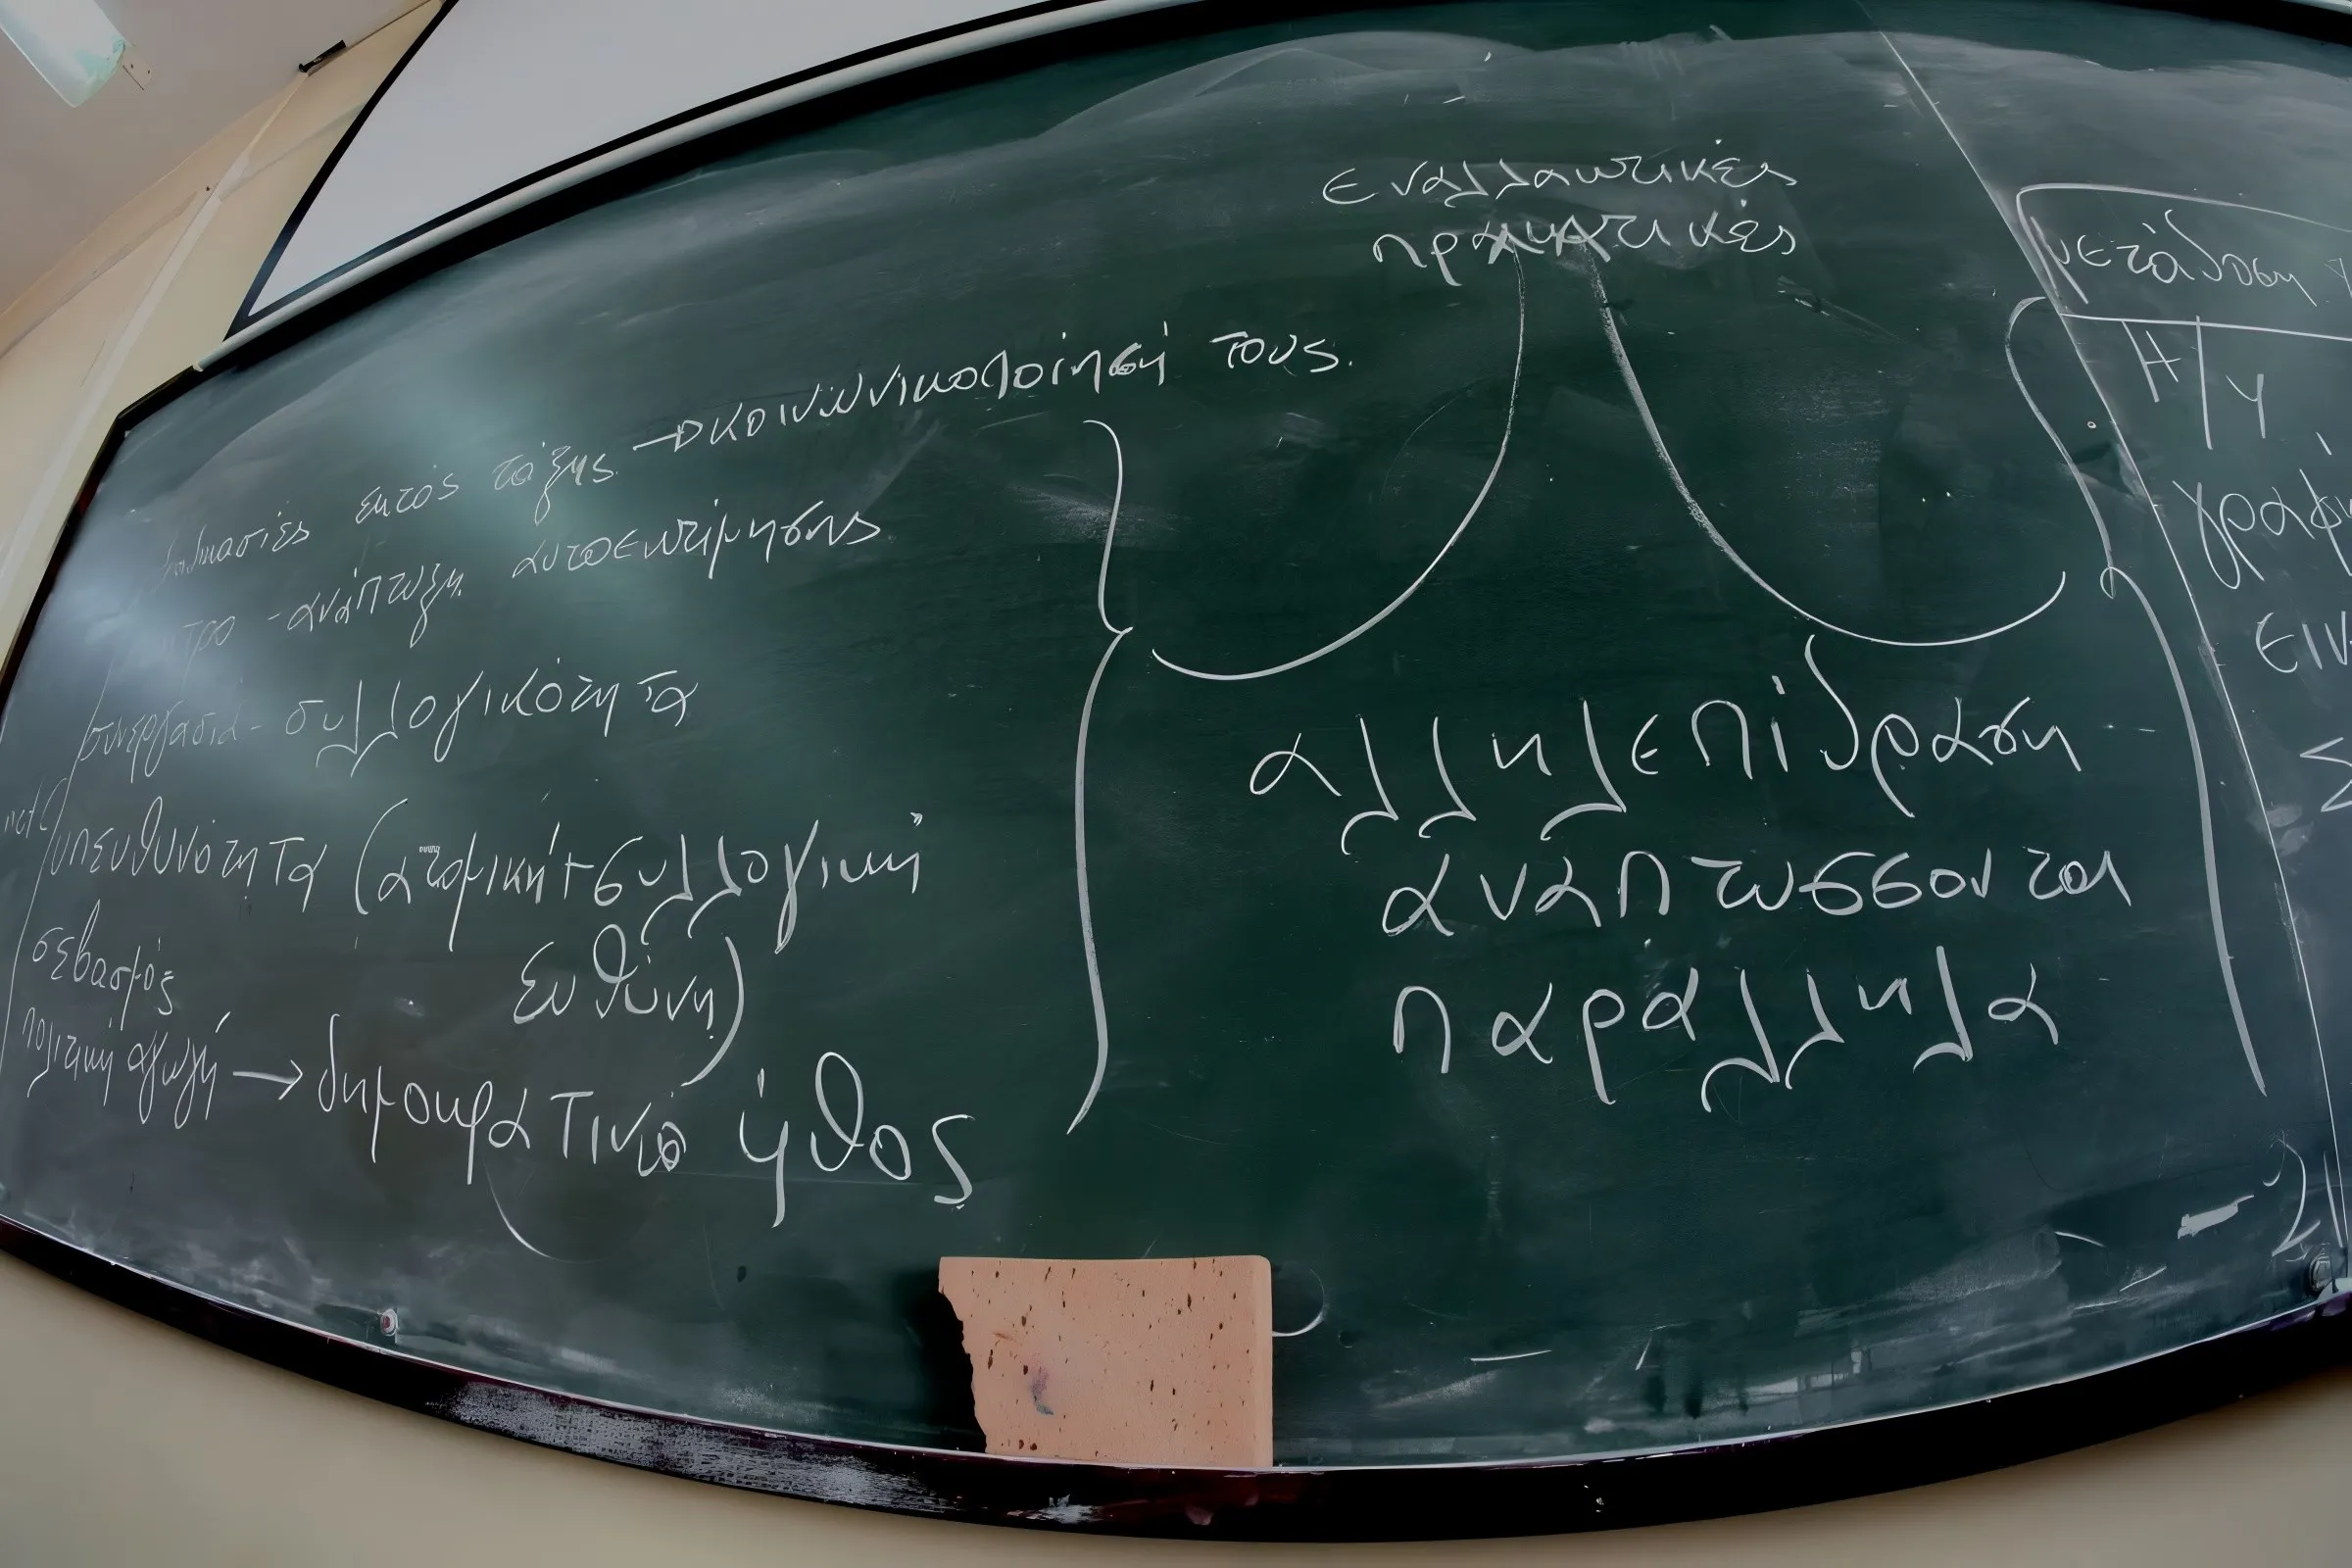 εναλλακτικές
πρακτικές
διαδικασίες εκτός τάξης → κοινωνικοποίησή τους.
-ανάπτυξη αυτοεκτίμησης
συνεργασία - συλλογικότητα
υπευθυνότητα (ατομική + συλλογική
ευθύνη)
σεβασμός
πολιτική αγωγή → δημοκρατικό ήθος
αλληλεπίδραση
αναπτύσσονται
παράλληλα
μετάδοση
Η/Υ